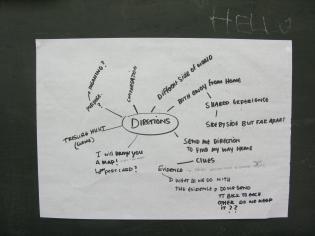 HELLO
MEANING?
PURPOSE?
CONVERSATION
DIFFERENT SIDE OF WORLD
BOTH AWAY FROM HOME
SHARED EXPERIENCE
SIDE BY SIDE BUT FAR APART
DIRETIONS
TRESURE HUNT
(GAME)
I will DRAW YOU
A MAP!
POSTCARD?
SEND ME DIRECTION
TO FIND MY WAY HOME
CLUES
EVIDENCE
WHAT DO WE DO WITH
THE EVIDENCE DO WE SEND
IT BACK TO EACH
OTHER DO WE KEEP
IT ??